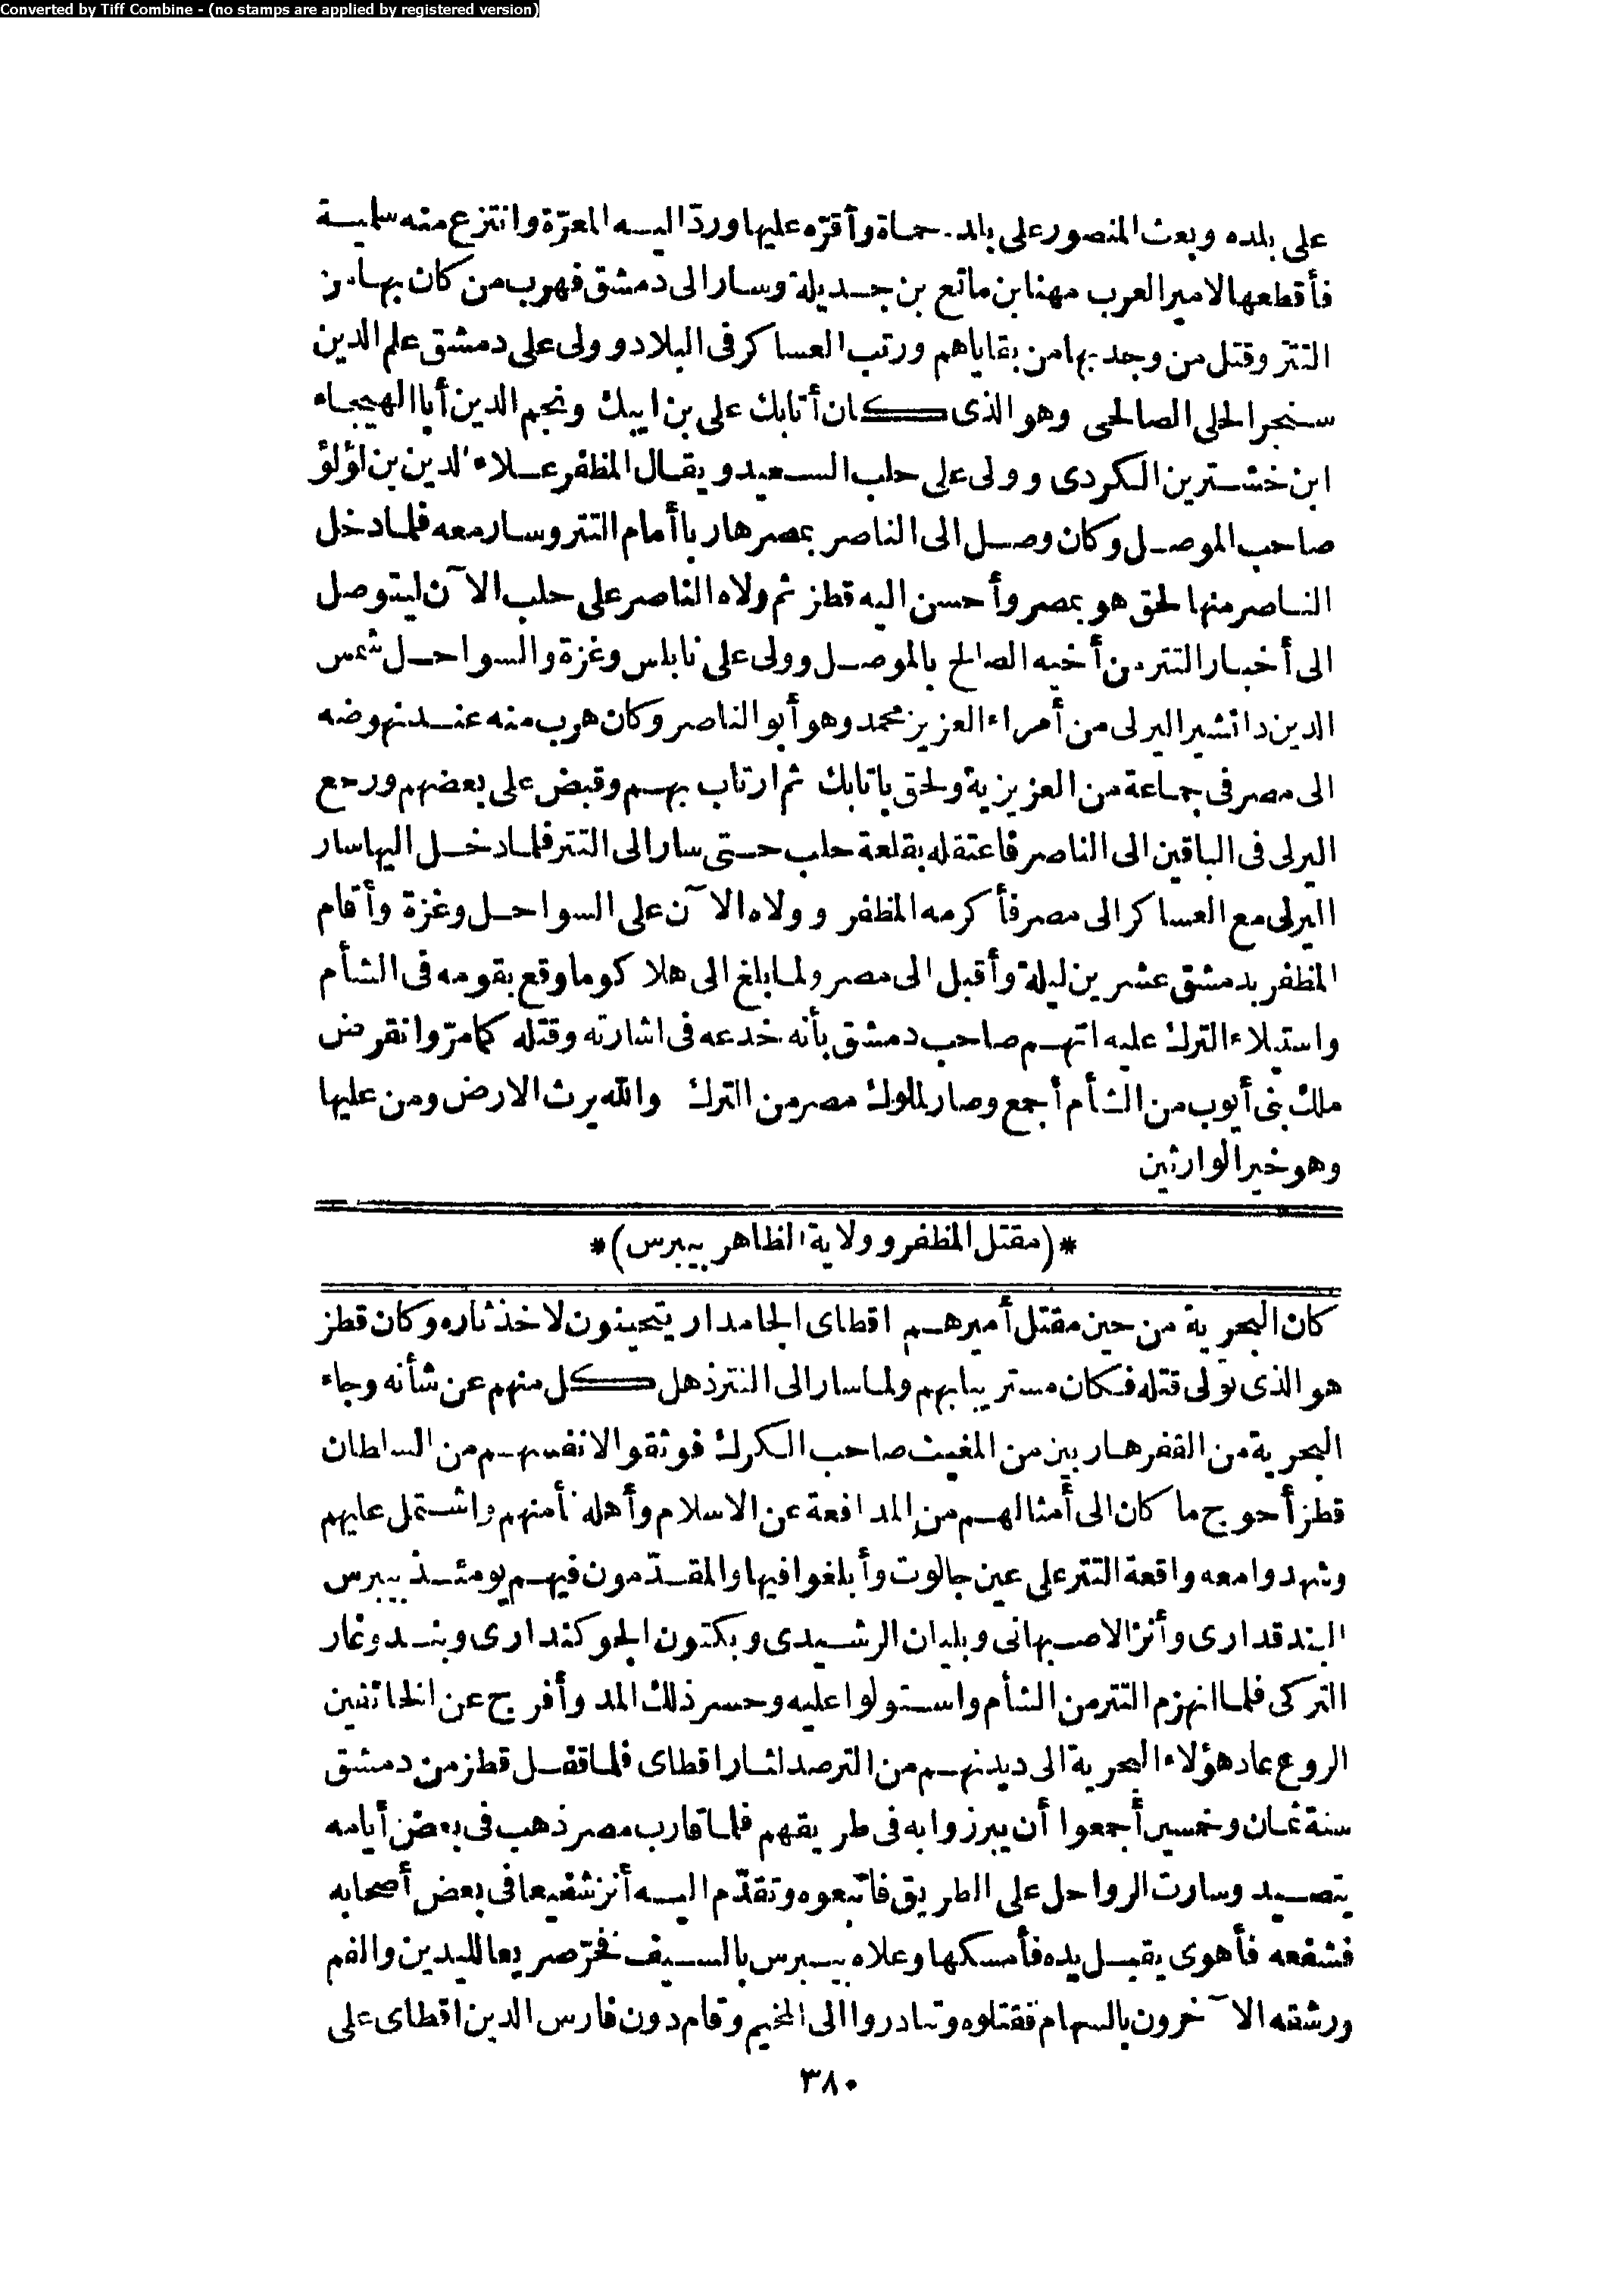 Converted by Tiff Combine - (no stamps are applied by registered version)
على بلده وبعث المنصور على بلد. حماة وأقرّه عليها وردّ اليه المعرّة وانتزع منه سلمية
فأقطعها لامير العرب مهنا بن مانع بن جديلة وسار الى دمشق فهرب من كان بها من
التتر وقتل من وجد بها من بقاياهم ورتب العساكر فى البلاد وولى على دمشق علم الدين
سنجر الحلى الصالحى وهو الذى كان أتابك على بن ايبك ونجم الدين أبا الهيجاء
ابن خشترين الكردى وولى على حلب السعيد ويقال المظفر علاء الدين بن لؤلؤ
صاحب الموصل وكان وصل الى الناصر بمصر هاربا أمام التتر وسار معه فلما دخل
الناصر منها لحق هو بمصر وأحسن اليه قطز ثم ولاه الناصر على حلب الآن ليتوصل
الى أخبار التتر من أخيه الصالح بالموصل وولى على نابلس وغزة والسواحل شمس
الدين دانشير البرلى من أمراء العزيز محمد وهو أبو الناصر وكان هرب منه عند نهوضه
الى مصر فى جماعة من العزيزية ولحق باتابك ثم ارتاب بهم وقبض على بعضهم ورجع
البرلى فى الباقين الى الناصر فاعتقله بقلعة حلب حتى سار الى التتر فلما دخل اليها سار
البرلى مع العساكر الى مصر فأكرمه المظفر وولاه الآن على السواحل وغزة وأقام
المظفر بدمشق عشرين ليلة وأقبل الى مصر ولما بلغ الى هلاكو ما وقع بقومه فى الشأم
واستيلاء الترك عليه اتهم صاحب دمشق بأنه خدعه فى اشارته وقتله كما مرّ وانقرض
ملك بنى أيوب من الشأم أجمع وصار لملوك مصر من الترك والله يرث الارض ومن عليها
وهو خير الوارثين
*(مقتل المظفر وولاية الظاهر بيبرس)*
كان البحرية من حين مقتل أميرهم اقطاى الجامدار يتحينون لاخذ ثاره وكان قطز
هو الذى تولى قتله فكان مستريبا بهم ولما سار الى التتر ذهل كل منهم عن شأنه وجاء
البحرية من القفر هاربين من المغيث صاحب الكرك فوثقوا لانفسهم من السلطان
قطز أحوج ما كان الى أمثالهم من المدافعة عن الاسلام وأهله فأمنهم واشتمل عليهم
وشهدوا معه واقعة التتر على عين جالوت وأبلغوا فيها والمقدّمون فيهم يومئذ بيبرس
البندقدارى وأنز الاصبهانى وبلبان الرشيدى وبكتون الجوكندارى وبندوغار
التركى فلما انهزم التتر من الشأم واستولوا عليه وحسر ذلك المد وأفرج عن الخائفين
الروع عاد هؤلاء البحرية الى ديدنهم من الترصد لثار اقطاى فلما قفل قطز من دمشق
سنة ثمان وخمسين أجمعوا أن يبرزوا به فى طريقهم فلما قارب مصر ذهب فى بعض أيامه
يتصيد وسارت الرواحل على الطريق فاتبعوه وتقدّم اليه أنز شفيعا فى بعض أصحابه
فشفعه فأهوى يقبل يده فأمسكها وعلاه بيبرس بالسيف فخرّ صريعا لليدين والفم
ورشقه الآخرون بالسهام فقتلوه وتبادروا الى المخيم وقام دون فارس الدين اقطاى على
٣٨٠